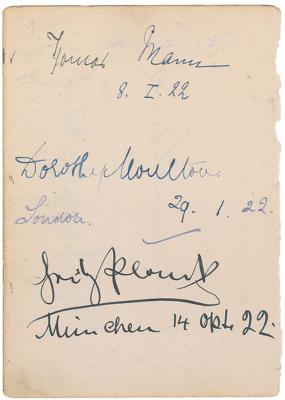 Thomas Mann
8. I. 22
Dorothy Moulton.
London. 29. 1. 22.
Fritz
München 14 Okt. 22.